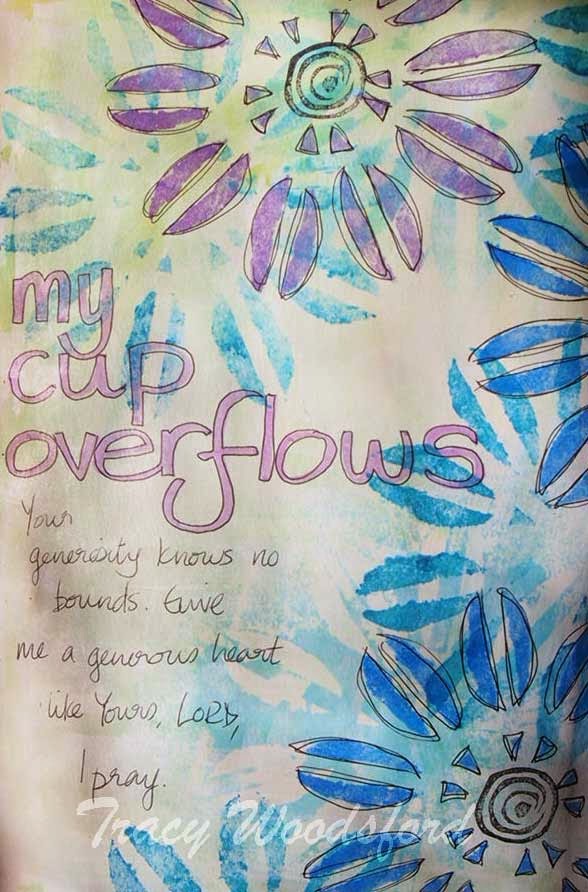 my
cup
overflows
Your
generosity knows no
bounds. Give
me a generous heart
like Yours, LORD,
I pray.
Tracy Woodsford